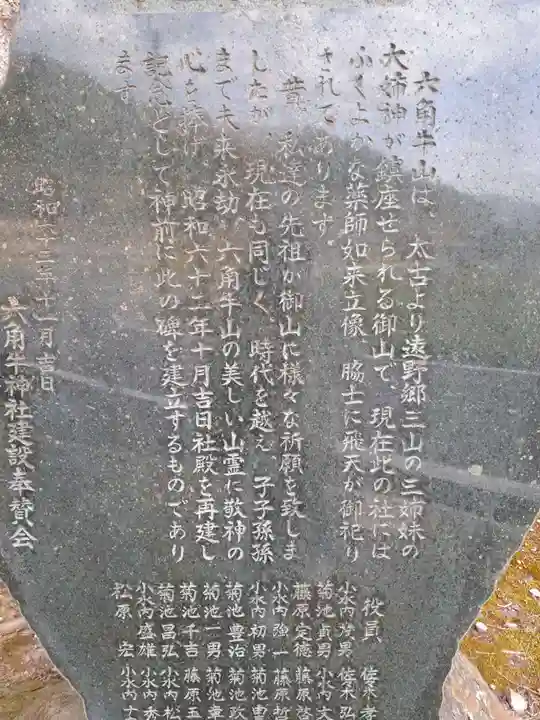 六角牛山は、太古より遠野郷三山の三姉妹の
大姉神が鎮座せられる御山で、現在此の社には
ふくよかな薬師如来立像、脇士に飛天が御祀り
されてあります。
昔、私達の先祖が御山に様々な祈願を致しま
したが、現在も同じく、時代を越え、子子孫孫
まで夫来永劫、六角牛山の美しい山霊に敬神の
心を捧げ、昭和六十二年十月吉日社殿を再建し
記念として神前に此の碑を建立するものであり
ます
昭和六十三年十一月吉日
六角牛神社建設奉賛会
役員
小水内 佐々木
菊池貞男 小水内文
藤原定徳 藤原啓
小水内強一 藤原哲
小水内初男 菊池
菊池豊治 菊池政
菊池一男 菊池章
菊池千吉 藤原五
菊池昌弘 小水内松
小水内盛雄 小水内秀
松原宏 小水内